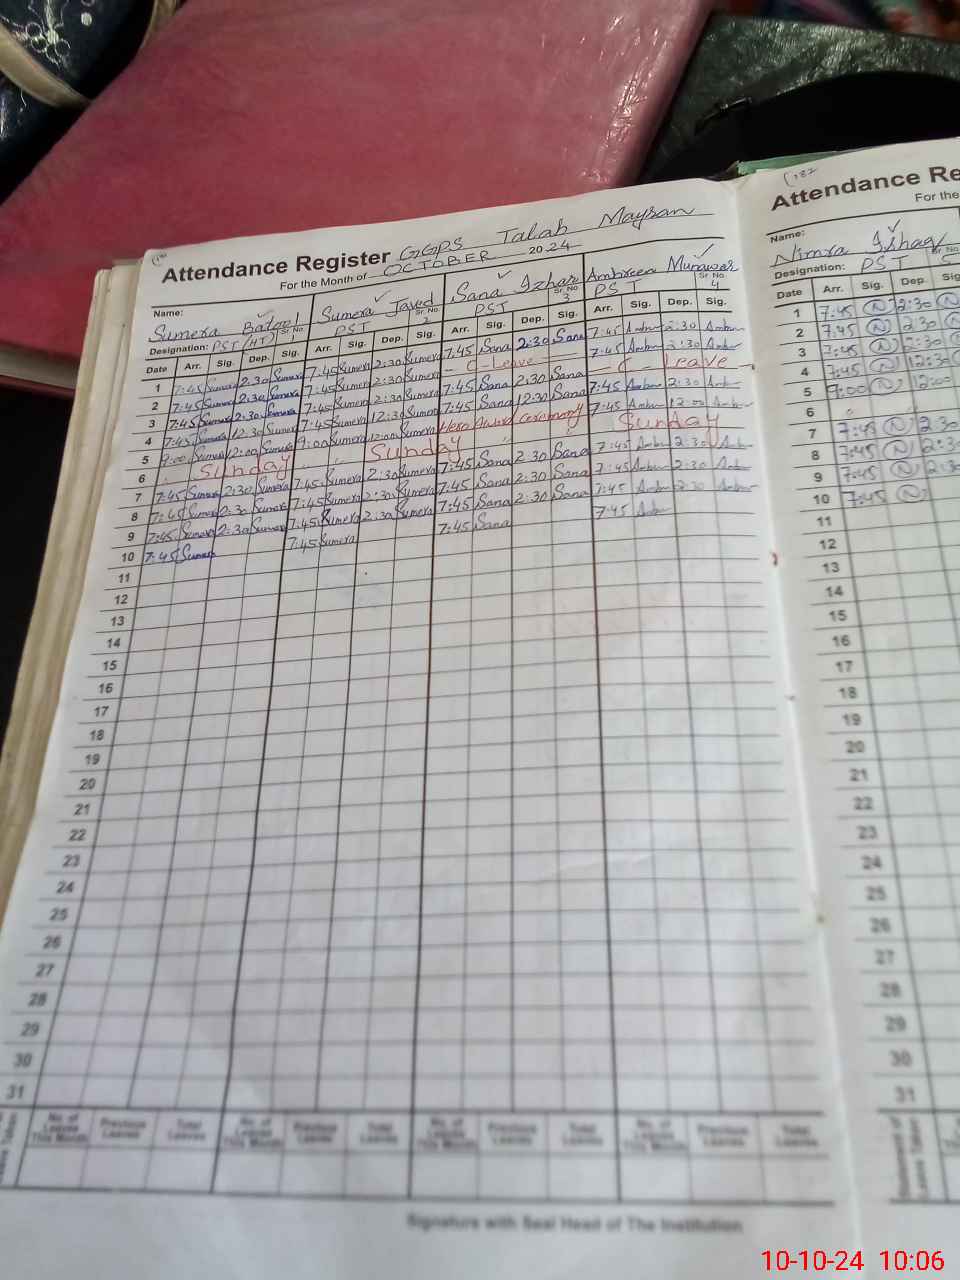 Attendance Register GGPS Talab Mayran
For the Month of OCTOBER 2024
Name: Sumera Batool Sumera Javed Sana Izhar Ambreen Munawar
Designation: PST (HT) Sr. No. 1 PST Sr. No. 2 PST Sr. No. 3 PST Sr. No. 4
Date Arr. Sig. Dep. Sig. Arr. Sig. Dep. Sig. Arr. Sig. Dep. Sig. Arr. Sig. Dep. Sig.
1 7:45 Sumera 2:30 Sumera 7:45 Sumera 2:30 Sumera 7:45 Sana 2:30 Sana 7:45 Amber 2:30 Amber
2 7:45 Sumera 2:30 Sumera 7:45 Sumera 2:30 Sumera - C-Leave - 7:45 Amber 2:30 Amber
3 7:45 Sumera 2:30 Sumera 7:45 Sumera 2:30 Sumera 7:45 Sana 2:30 Sana - C Leave -
4 7:45 Sumera 12:30 Sumera 7:45 Sumera 12:30 Sumera 7:45 Sana 12:30 Sana 7:45 Amber 2:30 Amber
5 9:00 Sumera 12:00 Sumera 9:00 Sumera 12:00 Sumera Hero Award Ceremony 7:45 Amber 12:00 Amber
6 Sunday Sunday Sunday
7 7:45 Sumera 2:30 Sumera 7:45 Sumera 2:30 Sumera 7:45 Sana 2:30 Sana 7:45 Amber 2:30 Amber
8 7:45 Sumera 2:30 Sumera 7:45 Sumera 2:30 Sumera 7:45 Sana 2:30 Sana 7:45 Amber 2:30 Amber
9 7:45 Sumera 2:30 Sumera 7:45 Sumera 2:30 Sumera 7:45 Sana 2:30 Sana 7:45 Amber 2:30 Amber
10 7:45 Sumera 7:45 Sumera 7:45 Sana 7:45 Amber
11
12
13
14
15
16
17
18
19
20
21
22
23
24
25
26
27
28
29
30
31
No. of Leaves This Month Previous Leaves Total Leaves No. of Leaves This Month Previous Leaves Total Leaves No. of Leaves This Month Previous Leaves Total Leaves No. of Leaves This Month Previous Leaves Total Leaves
Signature with Seal Head of The Institution
182
Attendance Re
For the
Name:
Nimra Ishaq
Designation: PST Sr. No. 5
Date Arr. Sig. Dep. Sig
1 7:45 N 2:30 N
2 7:45 N 2:30 N
3 7:45 N 2:30
4 7:45 N 12:30
5 7:00 N 12:00
6
7 7:45 N 2:30
8 7:45 N 2:30
9 7:45 N 2:30
10 7:45 N
11
12
13
14
15
16
17
18
19
20
21
22
23
24
25
26
27
28
29
30
31
10-10-24 10:06